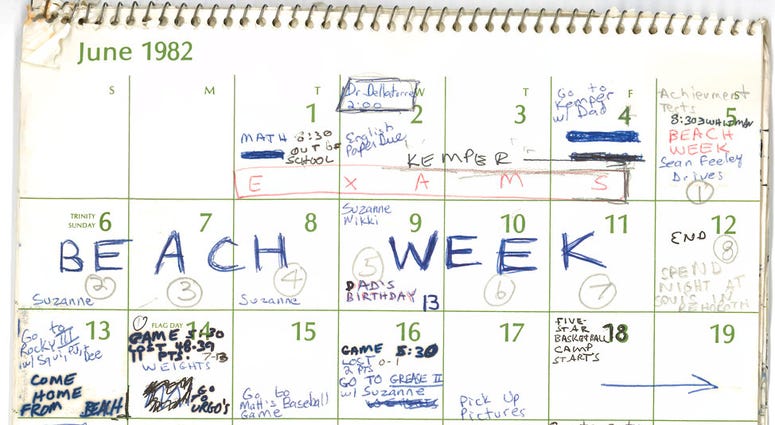 June 1982
S M T W T F S
1
MATH 8:30
OUT OF
SCHOOL
Dr. Dellatorre
2:00
2
English
Paper Due
3
KEMPER
Go to
Kemper
w/ Dad
4
EXAMS
Achievement
Tests
5
8:30
BEACH
WEEK
Sean Feeley
Drives
1
TRINITY
SUNDAY 6
7
8
Suzanne
Nikki
9
10
11
12
BEACH WEEK
END
8
2
3
4
5
6
7
SPEND
NIGHT AT
IN
REHOBOTH
Suzanne
Suzanne
DAD'S
BIRTHDAY 13
13
Go to
Rocky III
w/ Squi, PJ,
Dee
COME
HOME
FROM BEACH
1
FLAG DAY 14
GAME 5:30
LOST 48-39
11 PTS. 7-13
WEIGHTS
GO
TO
URGO'S
15
Go to
Matt's Baseball
Game
16
GAME 8:30
LOST 0-1
2 PTS
GO TO GREASE II
w/ Suzanne
17
Pick Up
Pictures
FIVE-
STAR 18
BASKETBALL
CAMP
STARTS
19